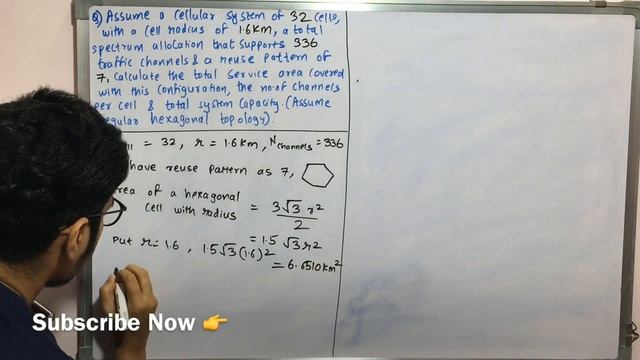 Q) Assume a cellular system of 32 cells,
with a cell radius of 1.6Km, a total
spectrum allocation that supports 336
traffic channels & a reuse pattern of
7, Calculate the total service area covered
with this configuration, the no. of channels
per cell & total system capacity. (Assume
regular hexagonal topology).
= 32, r = 1.6 km, Nchannels = 336
have reuse pattern as 7,
area of a hexagonal
cell with radius = 3√3 r²/2
= 1.5 √3 r²
Put r = 1.6, 1.5√3 (1.6)²
= 6.6510 km²
Subscribe Now 👉